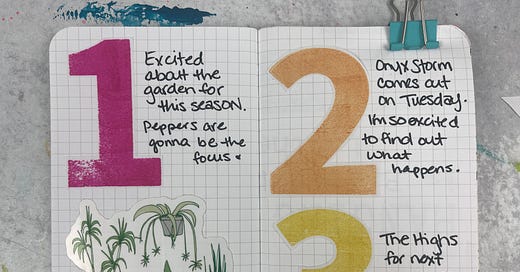 1
Excited
about the
garden for
this season.
Peppers are
gonna be the
focus
2
Onyx Storm
comes out
on Tuesday.
I'm so excited
to find out
what
happens.
3
The Highs
for next